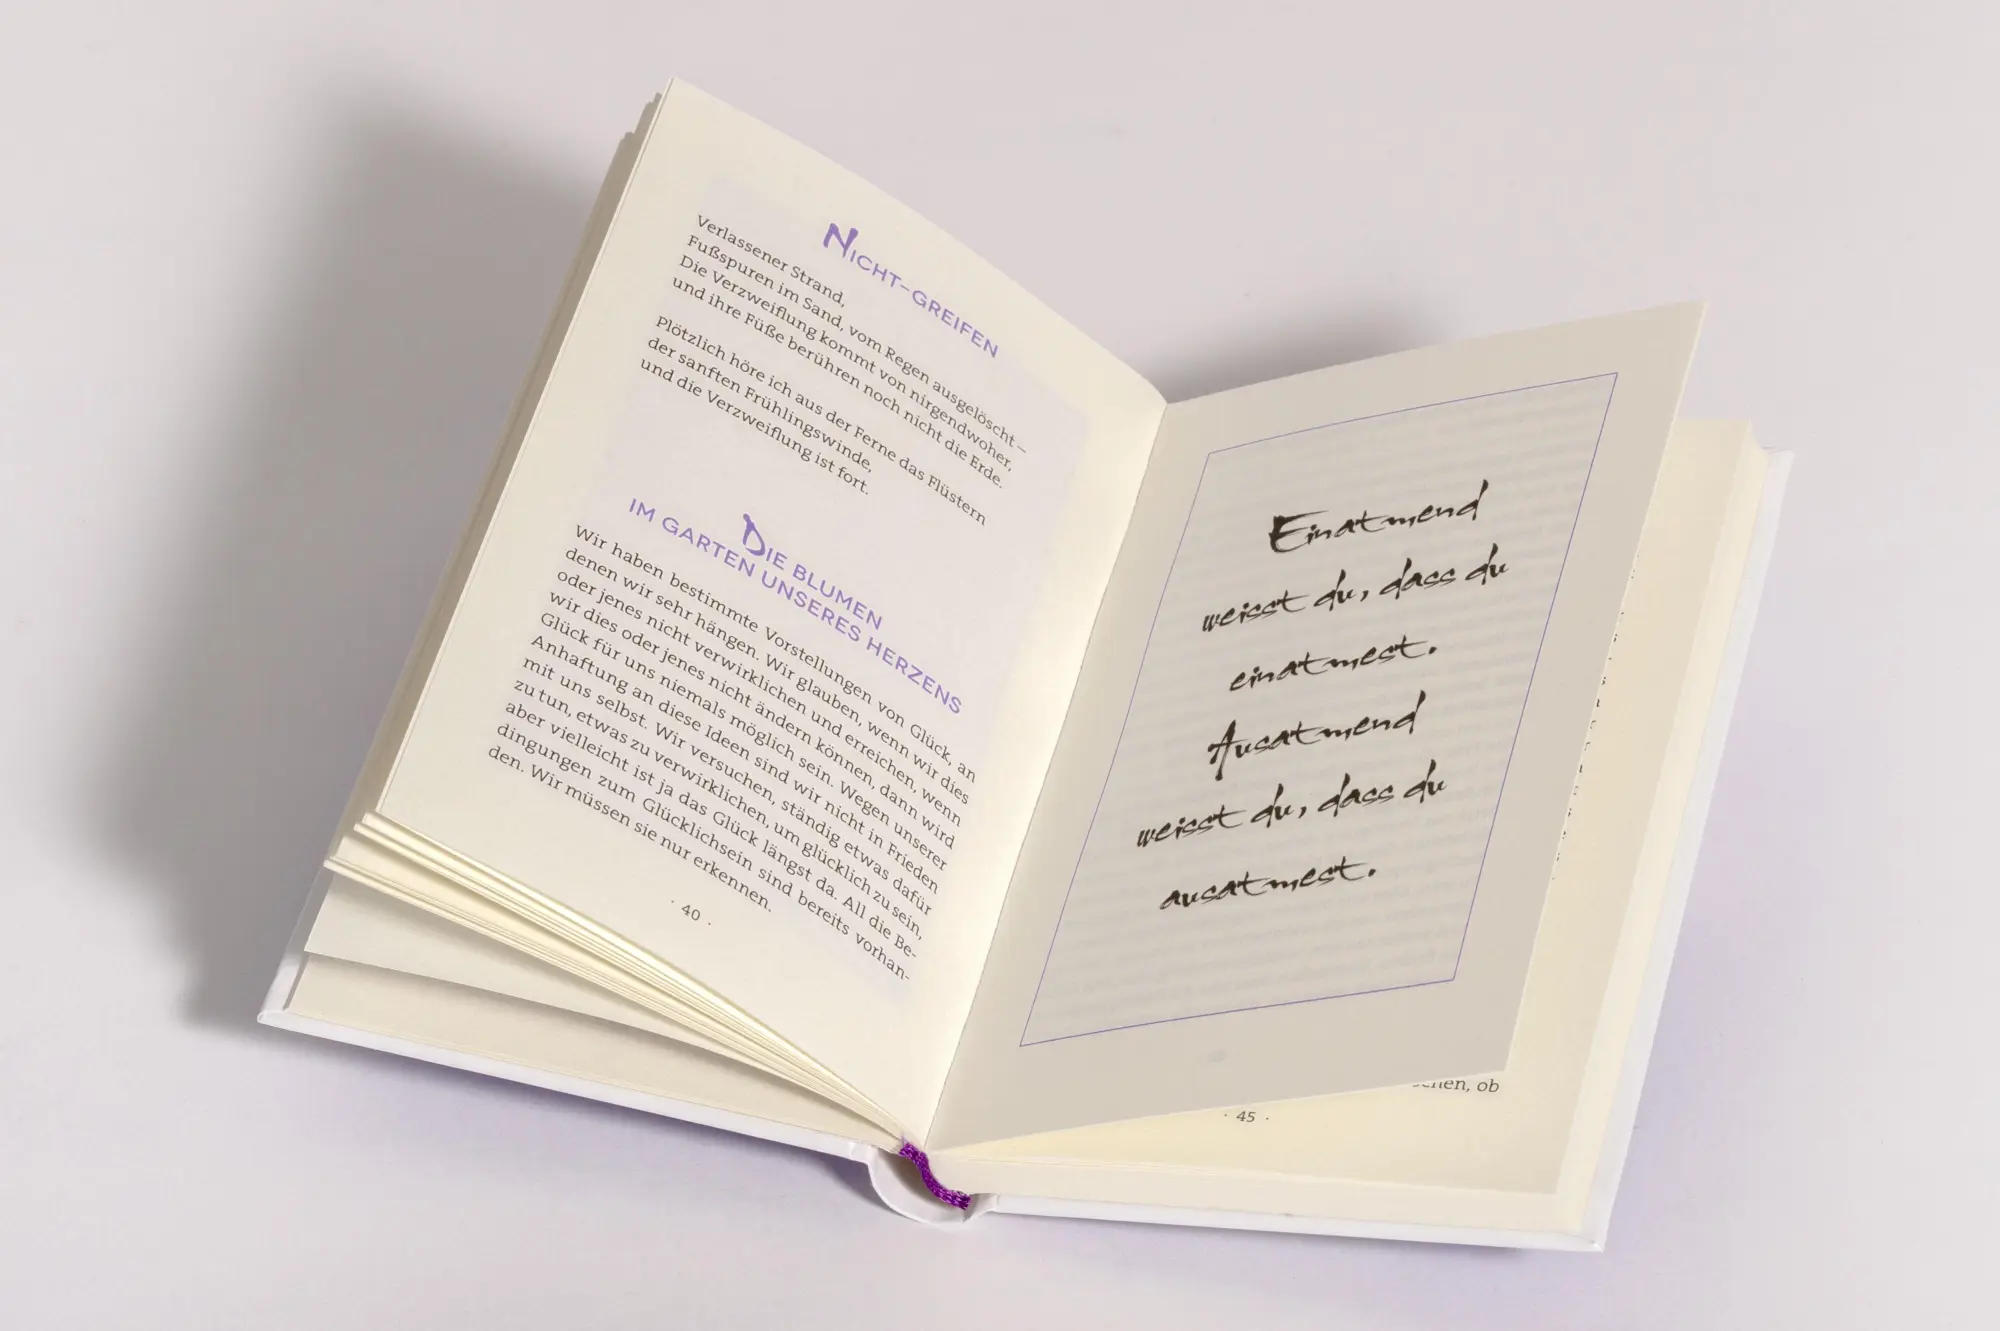 NICHT-GREIFEN
Verlassener Strand,
Fußspuren im Sand, vom Regen ausgelöscht –
Die Verzweiflung kommt von nirgendwoher,
und ihre Füße berühren noch nicht die Erde.
Plötzlich höre ich aus der Ferne das Flüstern
der sanften Frühlingswinde,
und die Verzweiflung ist fort.
DIE BLUMEN
IM GARTEN UNSERES HERZENS
Wir haben bestimmte Vorstellungen von Glück, an
denen wir sehr hängen. Wir glauben, wenn wir dies
oder jenes nicht verwirklichen und erreichen, wenn
wir dies oder jenes nicht ändern können, dann wird
Glück für uns niemals möglich sein. Wegen unserer
Anhaftung an diese Ideen sind wir nicht in Frieden
mit uns selbst. Wir versuchen, ständig etwas dafür
zu tun, etwas zu verwirklichen, um glücklich zu sein,
aber vielleicht ist ja das Glück längst da. All die Be-
dingungen zum Glücklichsein sind bereits vorhan-
den. Wir müssen sie nur erkennen.
· 40 ·
Einatmend
weisst du, dass du
einatmest.
Ausatmend
weisst du, dass du
ausatmest.
ob
· 45 ·